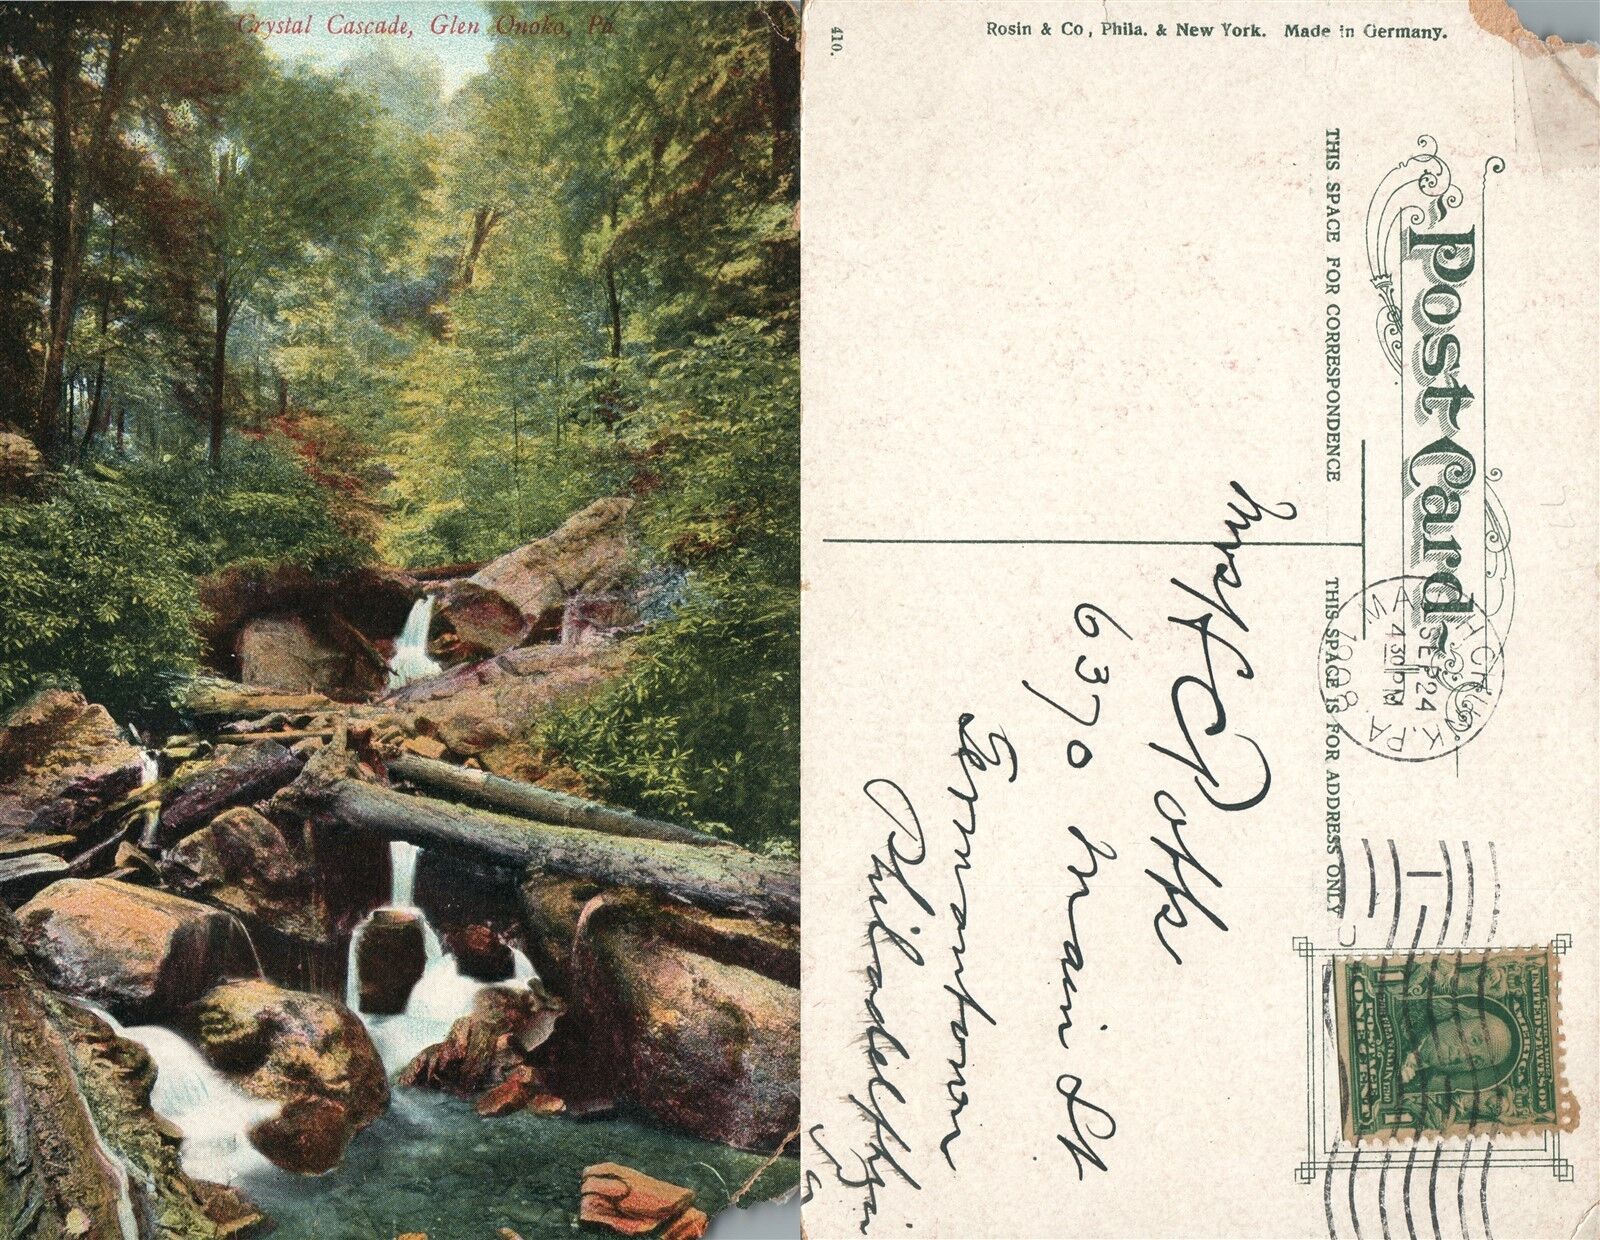 Crystal Cascade, Glen Onoko, Pa.
Rosin & Co, Phila. & New York. Made in Germany.
410.
Post Card
THIS SPACE FOR CORRESPONDENCE
THIS SPACE IS FOR ADDRESS ONLY
MAUCH CHUNK, PA.
SEP 24
4 30 PM
1908
Potts
6370 Main St
Germantown
Philadelphia
Pa
SERIES 1902
UNITED STATES OF AMERICA
POSTAGE
ONE CENT